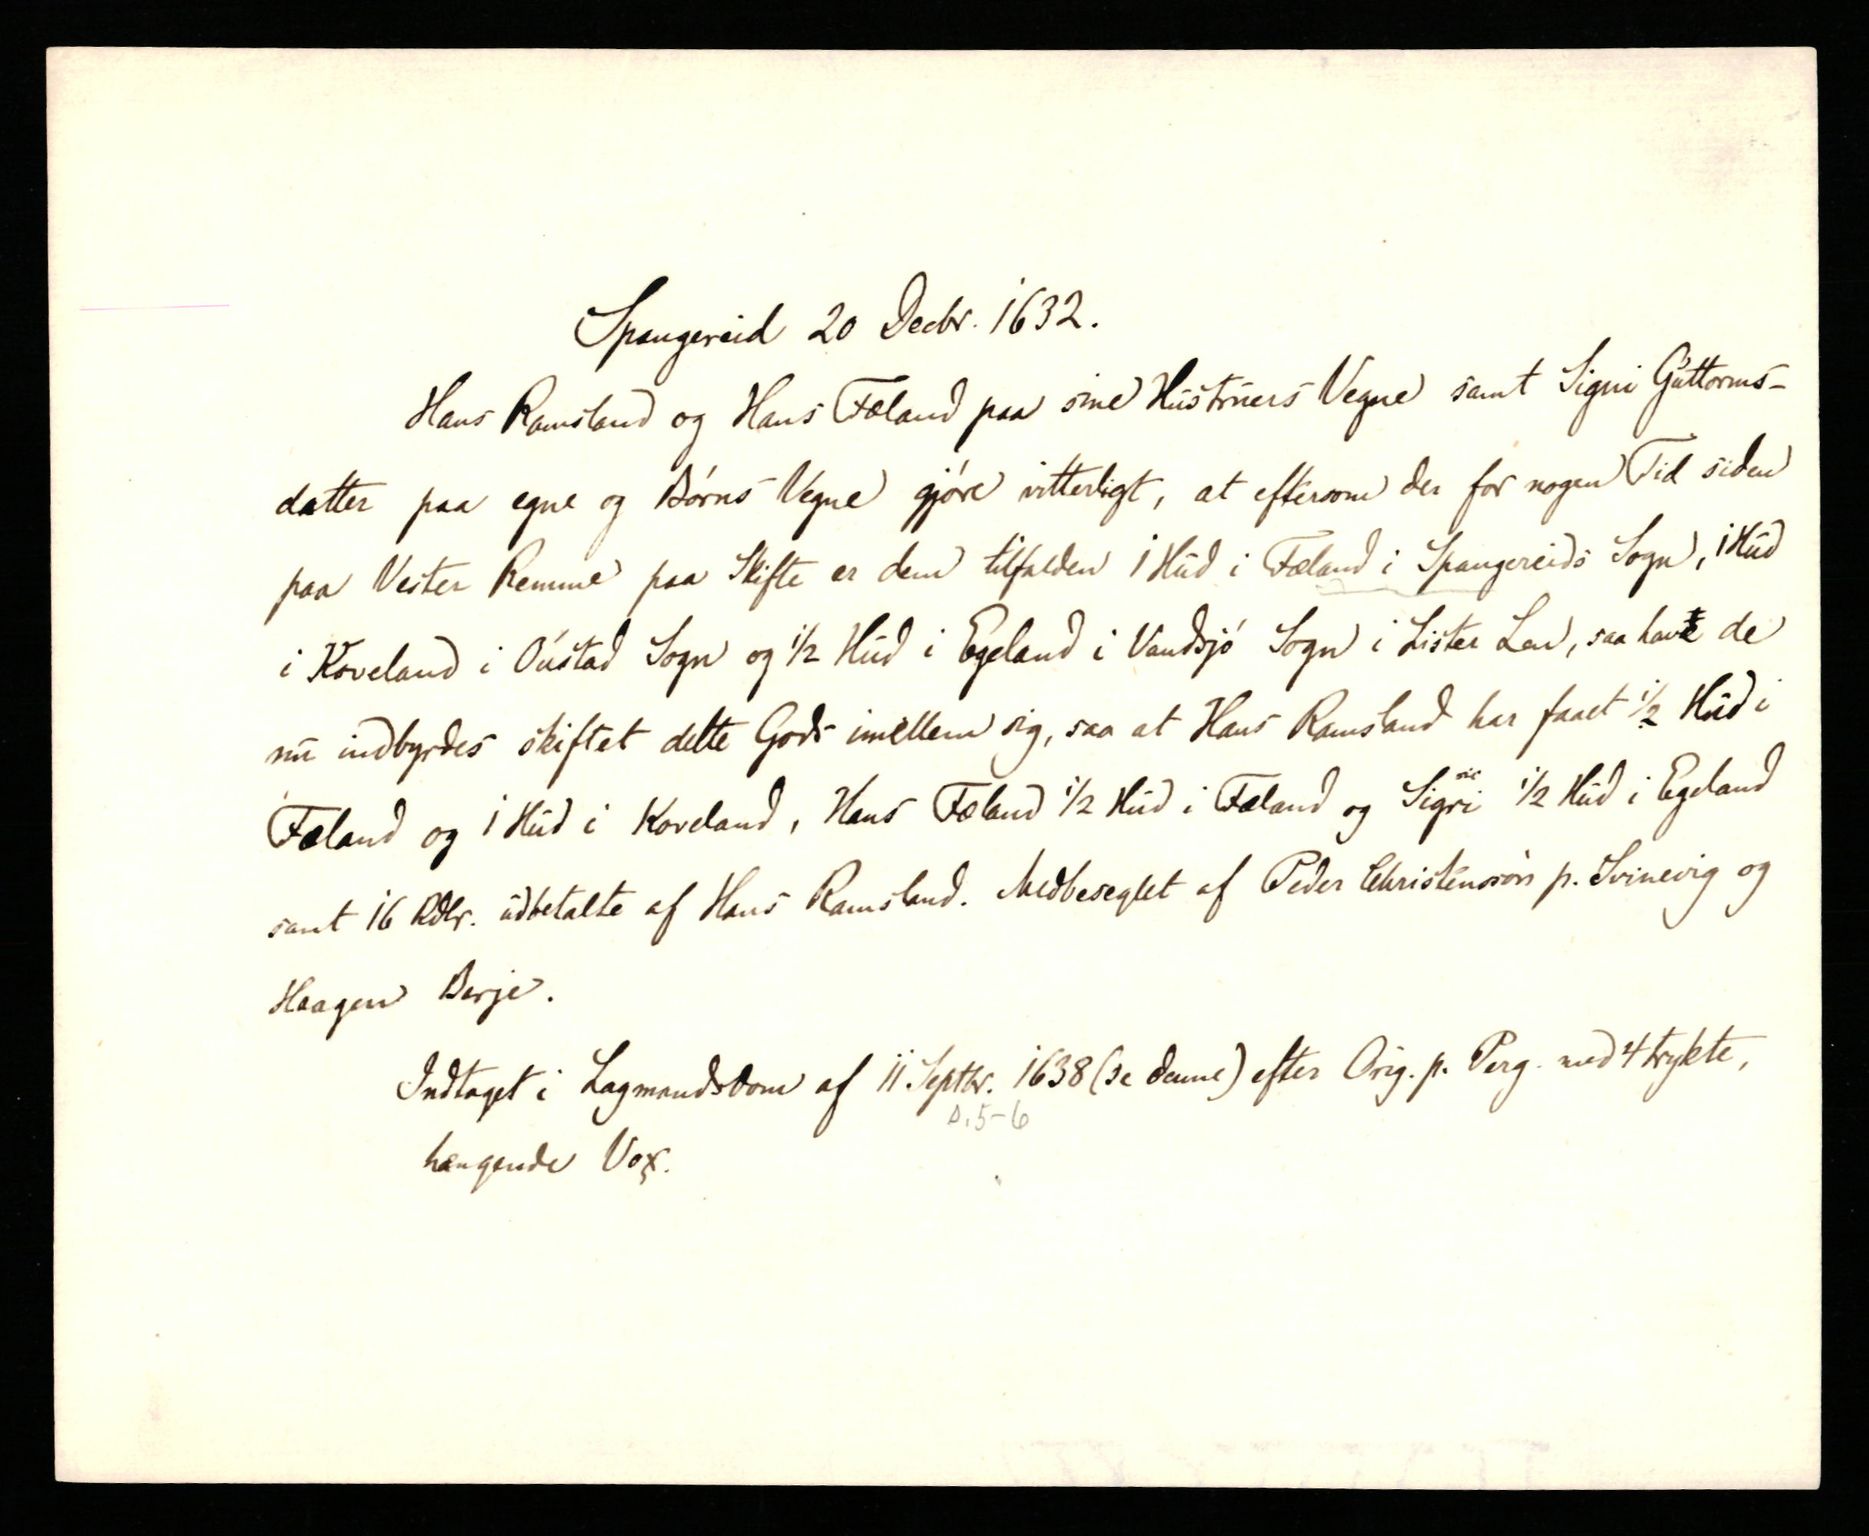 Spangereid 20 Decbr. 1632.
Hans Ramsland og Hans Fæland paa sine Hustruers Vegne samt Signi Guttorms-
datter paa egne og Börns Vegne gjöre vitterligt, at eftersom der for nogen Tid siden
paa Vester Remme paa Skifte er dem tilfalden 1 Hud i Fæland i Spangereids Sogn, 1 Hud
i Koveland i Oustad Sogn og 1/2 Hud i Egeland i Vandsjö Sogn i Lister Len, saa have de
nu indbyrdes skiftet dette Gods imellem sig, saa at Hans Ramsland har faaet 1/2 Hud i
Fæland og 1 Hud i Koveland, Hans Fæland 1/2 Hud i Fæland og Sigri sic 1/2 Hud i Egeland
samt 16 Rdlr. udbetalte af Hans Ramsland. Medbeseglet af Peder Christensön p. Svinevig og
Haagen Berje.
Indtaget i Lagmandsdom af 11 Septbr. 1638 (se denne) efter Orig. p. Perg. med 4 trykte,
D. 5-6
hængende Vox.